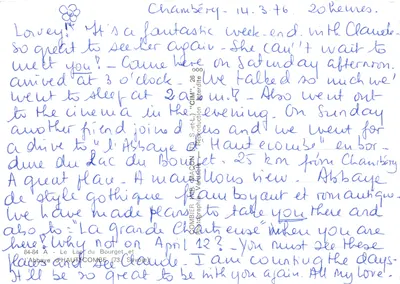 Chambéry - 14.3.76 20 heures.
Lovey - It's a fantastic week-end with Claude.
So great to see her again - She can't wait to
meet you! - Came here on Saturday afternoon.
arrived at 3 o'clock. We talked so much we
went to sleep at 2 a.m.! - Also went out
to the cinema in the evening. On Sunday
another friend joined us and we went for
a drive to "l'Abbaye d'Hautecombe" en bor-
dure du Lac du Bourget. 25 km from Chambéry
A great place. A marvellous view. Abbaye
de style gothique flamboyant et romantique.
We have made plans to take you there and
also to "La grande Chartreuse" when you are
here! Why not on April 12? - You must see these
places and see Claude. I am counting the days.
It'll be so great to be with you again. All my love.
84-84 A - Le Lac du Bourget et